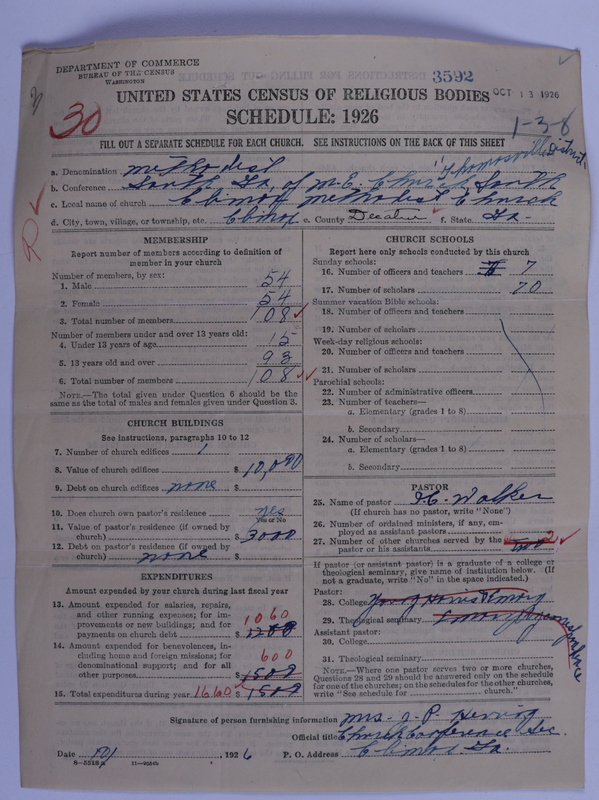 DEPARTMENT OF COMMERCE
BUREAU OF THE CENSUS
WASHINGTON
3592
OCT 13 1926
UNITED STATES CENSUS OF RELIGIOUS BODIES
SCHEDULE: 1926
30
1-3-8
FILL OUT A SEPARATE SCHEDULE FOR EACH CHURCH. SEE INSTRUCTIONS ON THE BACK OF THIS SHEET
a. Denomination Methodist
Thomasville District
b. Conference South Ga. of M. E. Church, South
c. Local name of church Methodist Church
d. City, town, village, or township, etc. e. County Decatur f. State Ga-
R
MEMBERSHIP
Report number of members according to definition of member in your church
Number of members, by sex:
1. Male 54
2. Female 54
3. Total number of members 108
Number of members under and over 13 years old:
4. Under 13 years of age 15
5. 13 years old and over 93
6. Total number of members 108
NOTE.—The total given under Question 6 should be the same as the total of males and females given under Question 3.
CHURCH BUILDINGS
See instructions, paragraphs 10 to 12
7. Number of church edifices 1
8. Value of church edifices $ 10,000
9. Debt on church edifices none $
10. Does church own pastor's residence yes
Yes or No
11. Value of pastor's residence (if owned by church) $ 3000
12. Debt on pastor's residence (if owned by church) none $
EXPENDITURES
Amount expended by your church during last fiscal year
13. Amount expended for salaries, repairs, and other running expenses; for improvements or new buildings; and for payments on church debt $ 1060
14. Amount expended for benevolences, including home and foreign missions; for denominational support; and for all other purposes $ 600 1500
15. Total expenditures during year 1660 $ 1500
CHURCH SCHOOLS
Report here only schools conducted by this church
Sunday schools:
16. Number of officers and teachers 7
17. Number of scholars 70
Summer vacation Bible schools:
18. Number of officers and teachers
19. Number of scholars
Week-day religious schools:
20. Number of officers and teachers
21. Number of scholars
Parochial schools:
22. Number of administrative officers
23. Number of teachers—
a. Elementary (grades 1 to 8)
b. Secondary
24. Number of scholars—
a. Elementary (grades 1 to 8)
b. Secondary
PASTOR
25. Name of pastor J. C. Walker
(If church has no pastor, write "None")
26. Number of ordained ministers, if any, employed as assistant pastors
27. Number of other churches served by the pastor or his assistants 2
If pastor (or assistant pastor) is a graduate of a college or theological seminary, give name of institution below. (If not a graduate, write "No" in the space indicated.)
Pastor:
28. College
29. Theological seminary
Assistant pastor:
30. College
31. Theological seminary
NOTE.—Where one pastor serves two or more churches, Questions 28 and 29 should be answered only on the schedule for one of the churches; on the schedules for the other churches, write "See schedule for church."
Signature of person furnishing information Mrs. J. P.
Official title Church Conference Sec.
Date 1926 P. O. Address Ga.
8-5518a 11-9024b